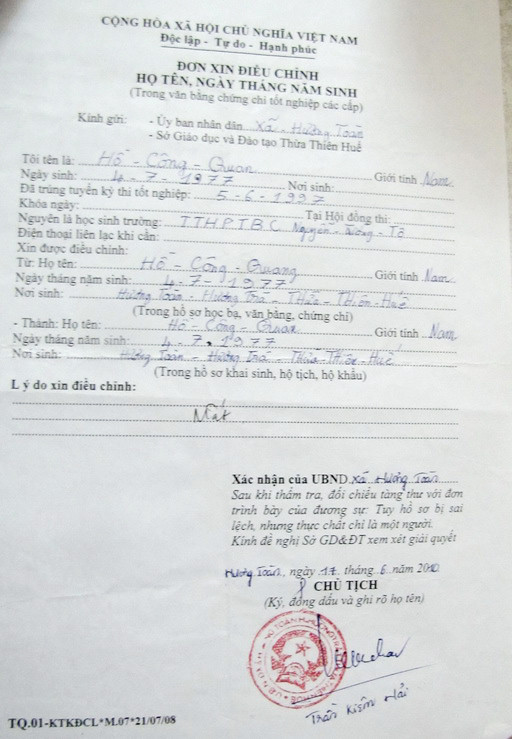 CỘNG HÒA XÃ HỘI CHỦ NGHĨA VIỆT NAM
Độc lập - Tự do - Hạnh phúc
ĐƠN XIN ĐIỀU CHỈNH
HỌ TÊN, NGÀY THÁNG NĂM SINH
(Trong văn bằng chứng chỉ tốt nghiệp các cấp)
Kính gửi: - Ủy ban nhân dân Xã - Hương Toàn
- Sở Giáo dục và Đào tạo Thừa Thiên Huế
Tôi tên là: Hồ - Công - Quan Giới tính Nam
Ngày sinh: 4 - 7 - 1977 Nơi sinh:
Đã trúng tuyển kỳ thi tốt nghiệp: 5 - 6 - 1997
Khóa ngày: Tại Hội đồng thi:
Nguyên là học sinh trường: TTHPTBC Nguyễn - Trường - Tộ
Điện thoại liên lạc khi cần:
Xin được điều chỉnh:
Từ: Họ tên: Hồ - Công - Quang Giới tính Nam
Ngày tháng năm sinh: 4 - 7 - 1977
Nơi sinh: Hương Toàn - Hương Trà - Thừa - Thiên - Huế
(Trong hồ sơ học bạ, văn bằng, chứng chỉ)
- Thành: Họ tên: Hồ - Công - Quan Giới tính Nam
Ngày tháng năm sinh: 4 - 7 - 1977
Nơi sinh: Hương Toàn - Hương Trà - Thừa - Thiên - Huế
(Trong hồ sơ khai sinh, hộ tịch, hộ khẩu)
Lý do xin điều chỉnh:
Mất
Xác nhận của UBND xã Hương Toàn
Sau khi thẩm tra, đối chiếu tàng thư với đơn
trình bày của đương sự: Tuy hồ sơ bị sai
lệch, nhưng thực chất chỉ là một người.
Kính đề nghị Sở GD&ĐT xem xét giải quyết
Hương Toàn, ngày 17 tháng 6 năm 2010
CHỦ TỊCH
(Ký, đóng dấu và ghi rõ họ tên)
Trần Kiêm Hải
TQ.01-KTKĐCL*M.07*21/07/08